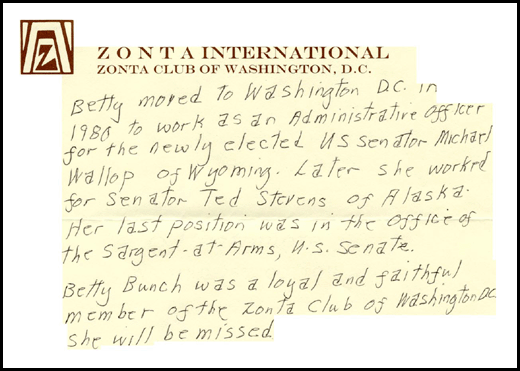 Z
ZONTA INTERNATIONAL
ZONTA CLUB OF WASHINGTON, D.C.
Betty moved to Washington D.C. in
1980 to work as an Administrative Officer
for the newly elected US Senator Michael
Wallop of Wyoming. Later she worked
for Senator Ted Stevens of Alaska.
Her last position was in the Office of
the Sargent-at-Arms, U.S. Senate.
Betty Bunch was a loyal and faithful
member of the Zonta Club of Washington DC
She will be missed